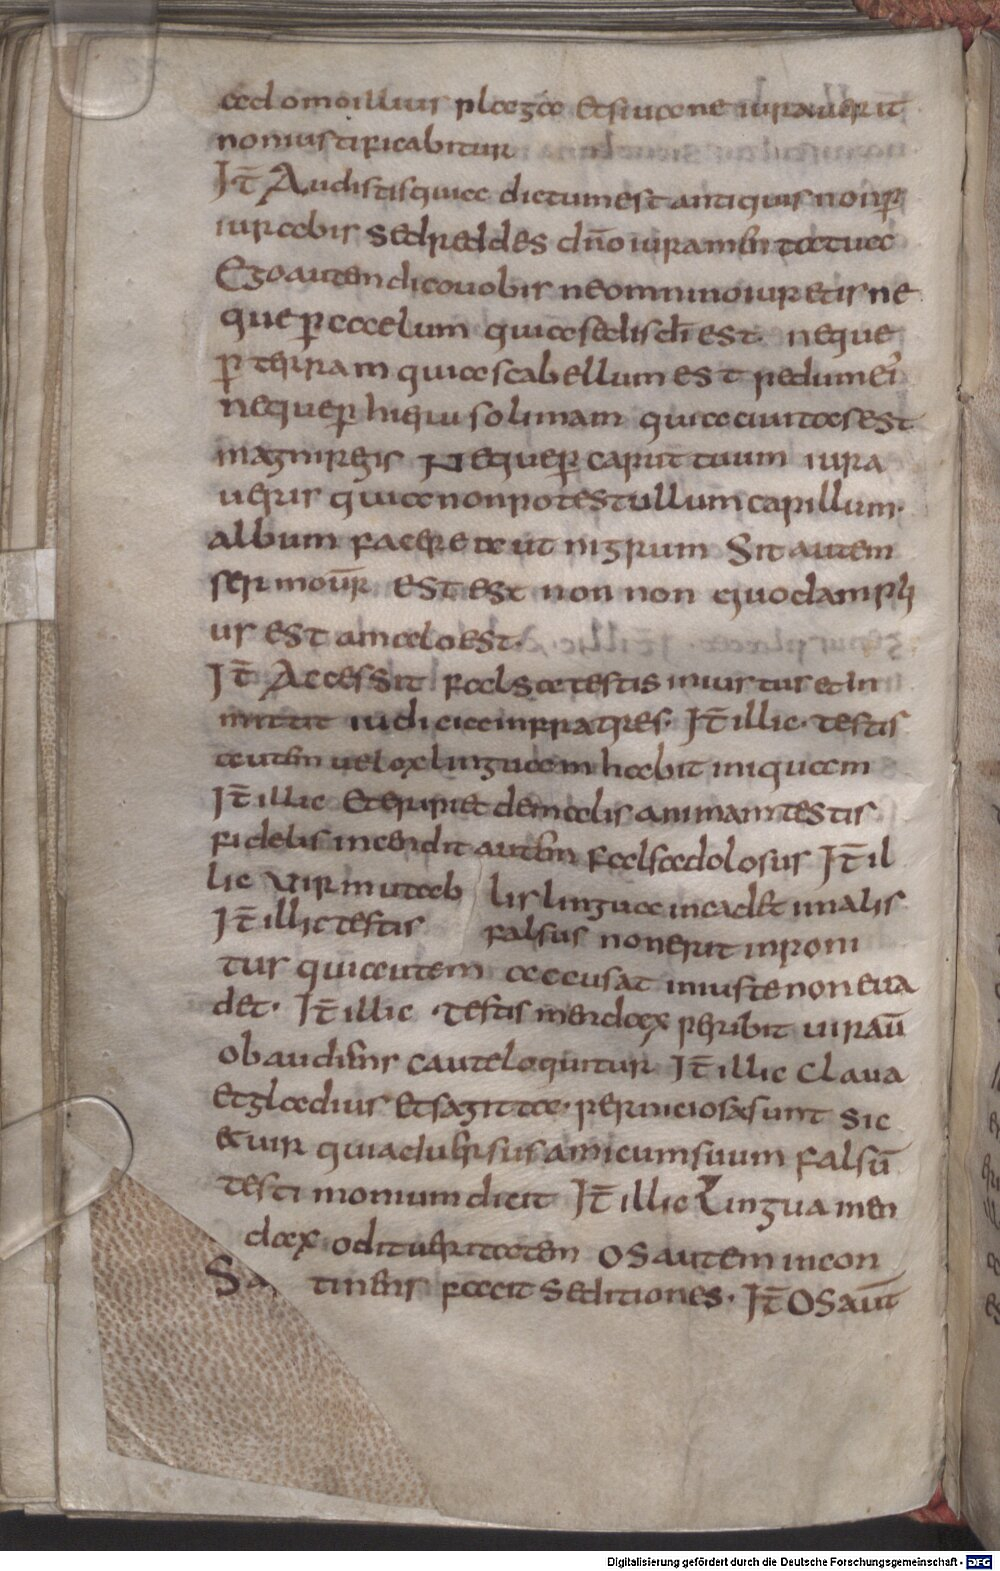 adomoillius plaga Etsiuane iurauerit
noniustificabitur
It̄ Audistisquia dictumest antiquis nonꝑ
iurabis Sedreddes dn̄o iuramen̄ta tua
Egoautem dicouobis neomninoiuretis ne
que ꝑ caelum quiasedisdī est. neque
ꝑ terram quiascabellum est pedumei'
nequeꝑ hierusolimam quiaciuitasest
magniregis Nequeꝑ caput tuum iura
ueris quianonpotestullumcapillum.
album facere aut nigrum Sit autem
sermour̄ est est non non quodampli
us est amaloest.
It̄ Accessit falsatestis iniustus et In
mittit iudicia infratres. It̄ illic. testis
autem̄ ueloxlinguam habit iniquam
It̄ illic Eteripiet demalis animamtestis
fidelis incendit autem̄ falsadolosus It̄ il
lic Vir mutab lis lingua incadet inalis
It̄ illic testis falsus nonerit inponi
tus quiautem accusat iniustenoneua
det. It̄ illic . Testis mendax peribit uirau̅
obaudiens cauteloquitur It̄ illic Claua
Etgladius Etsagitta. perniciosasunt Sic
etuir quiaduersusamicumsuum falsū
testi monium dicit It̄ illic Lingua men
dax oditueritatem Os autem incon
Sa tinens facit Seditiones. It̄ Osaut̄
Digitalisierung gefördert durch die Deutsche Forschungsgemeinschaft - DFG